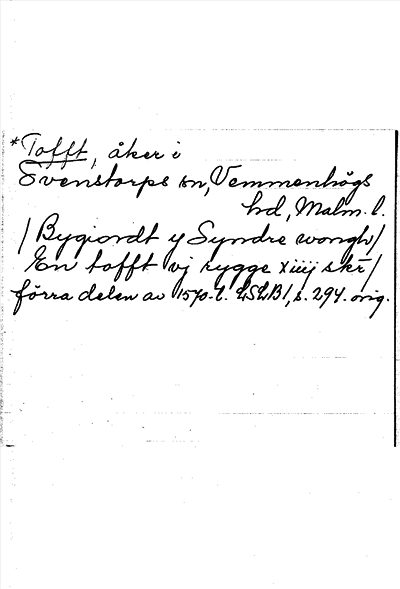 *Tofft, åker i
Svenstorps sn, Vemmenhögs
hd, Malm. l.
/ Bygiordt y Syndre wongh /
En tofft vj rygge xiiij skr̄ /
förra delen av 1570-t. LSLB 1, s. 294. orig.